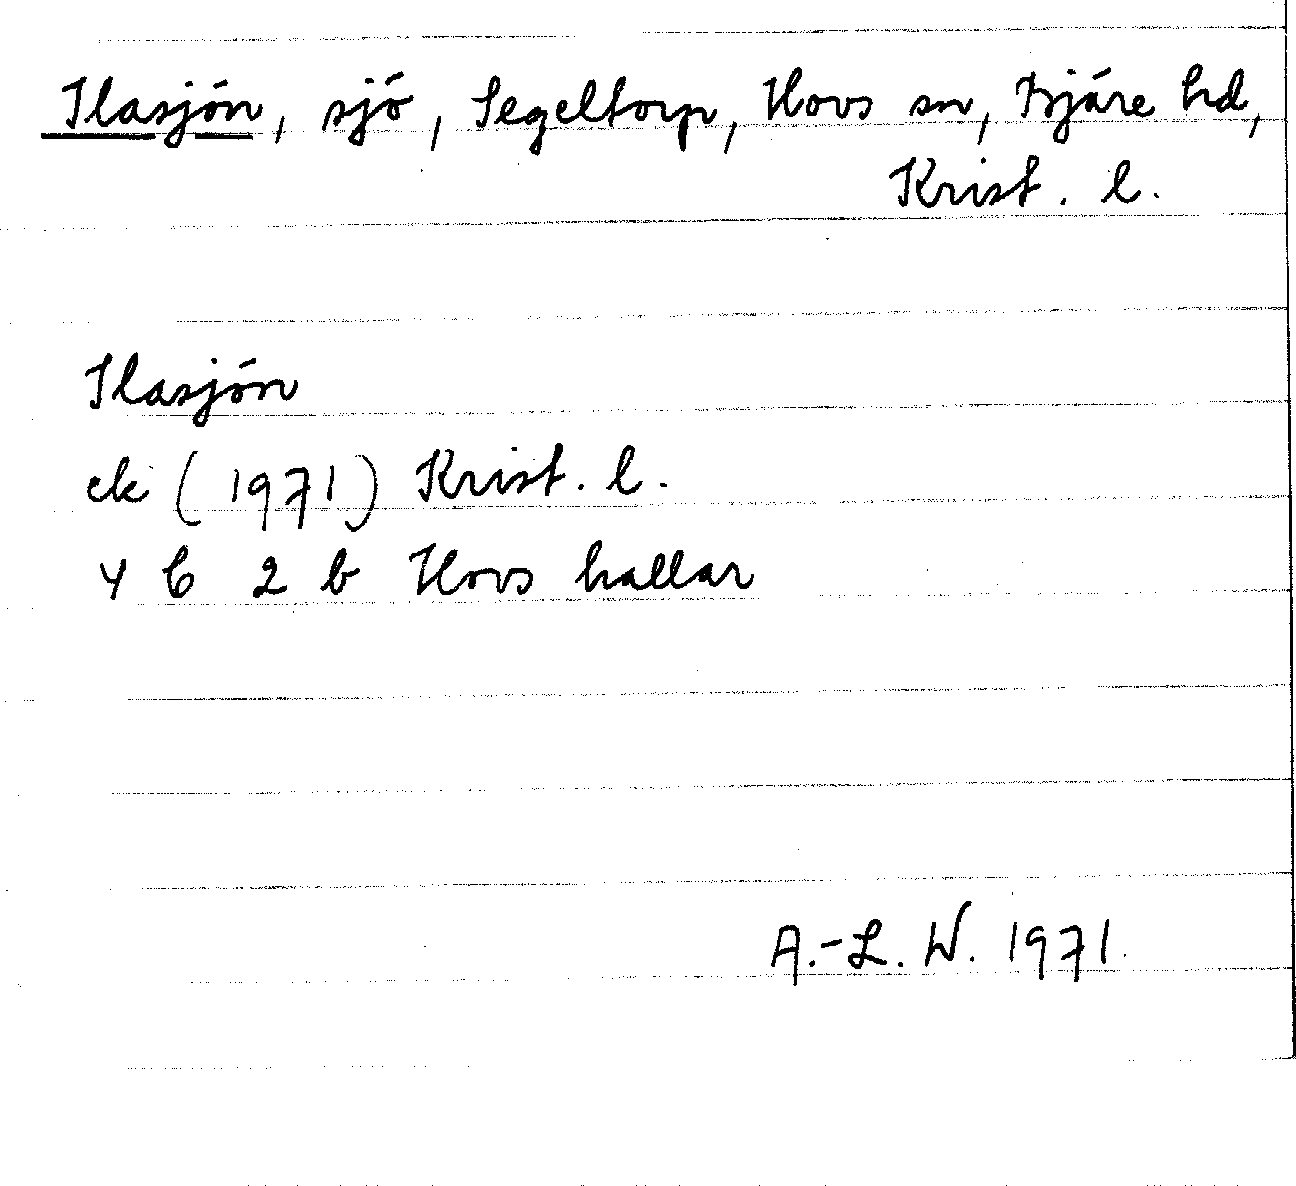 Ilasjön, sjö, Segeltorp, Hovs sn, Bjäre hd,
Krist. l.
Ilasjön
ek (1971) Krist. l.
4 C 2 b Hovs hallar
A.-L. W. 1971.